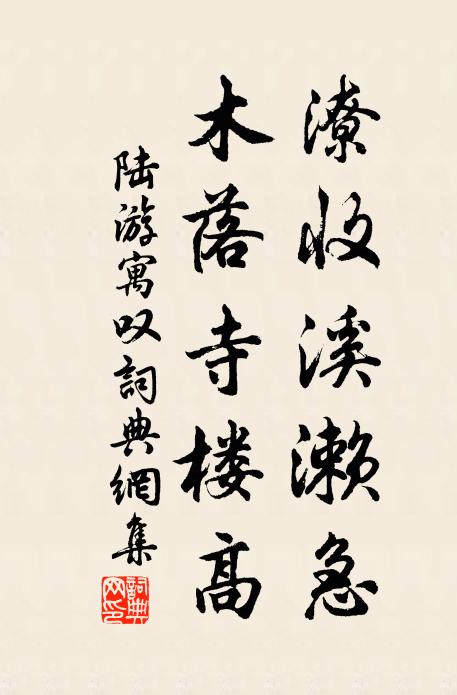 潦收溪濑急
木落寺楼高
陆游寓叹詞典網集
詞典网印